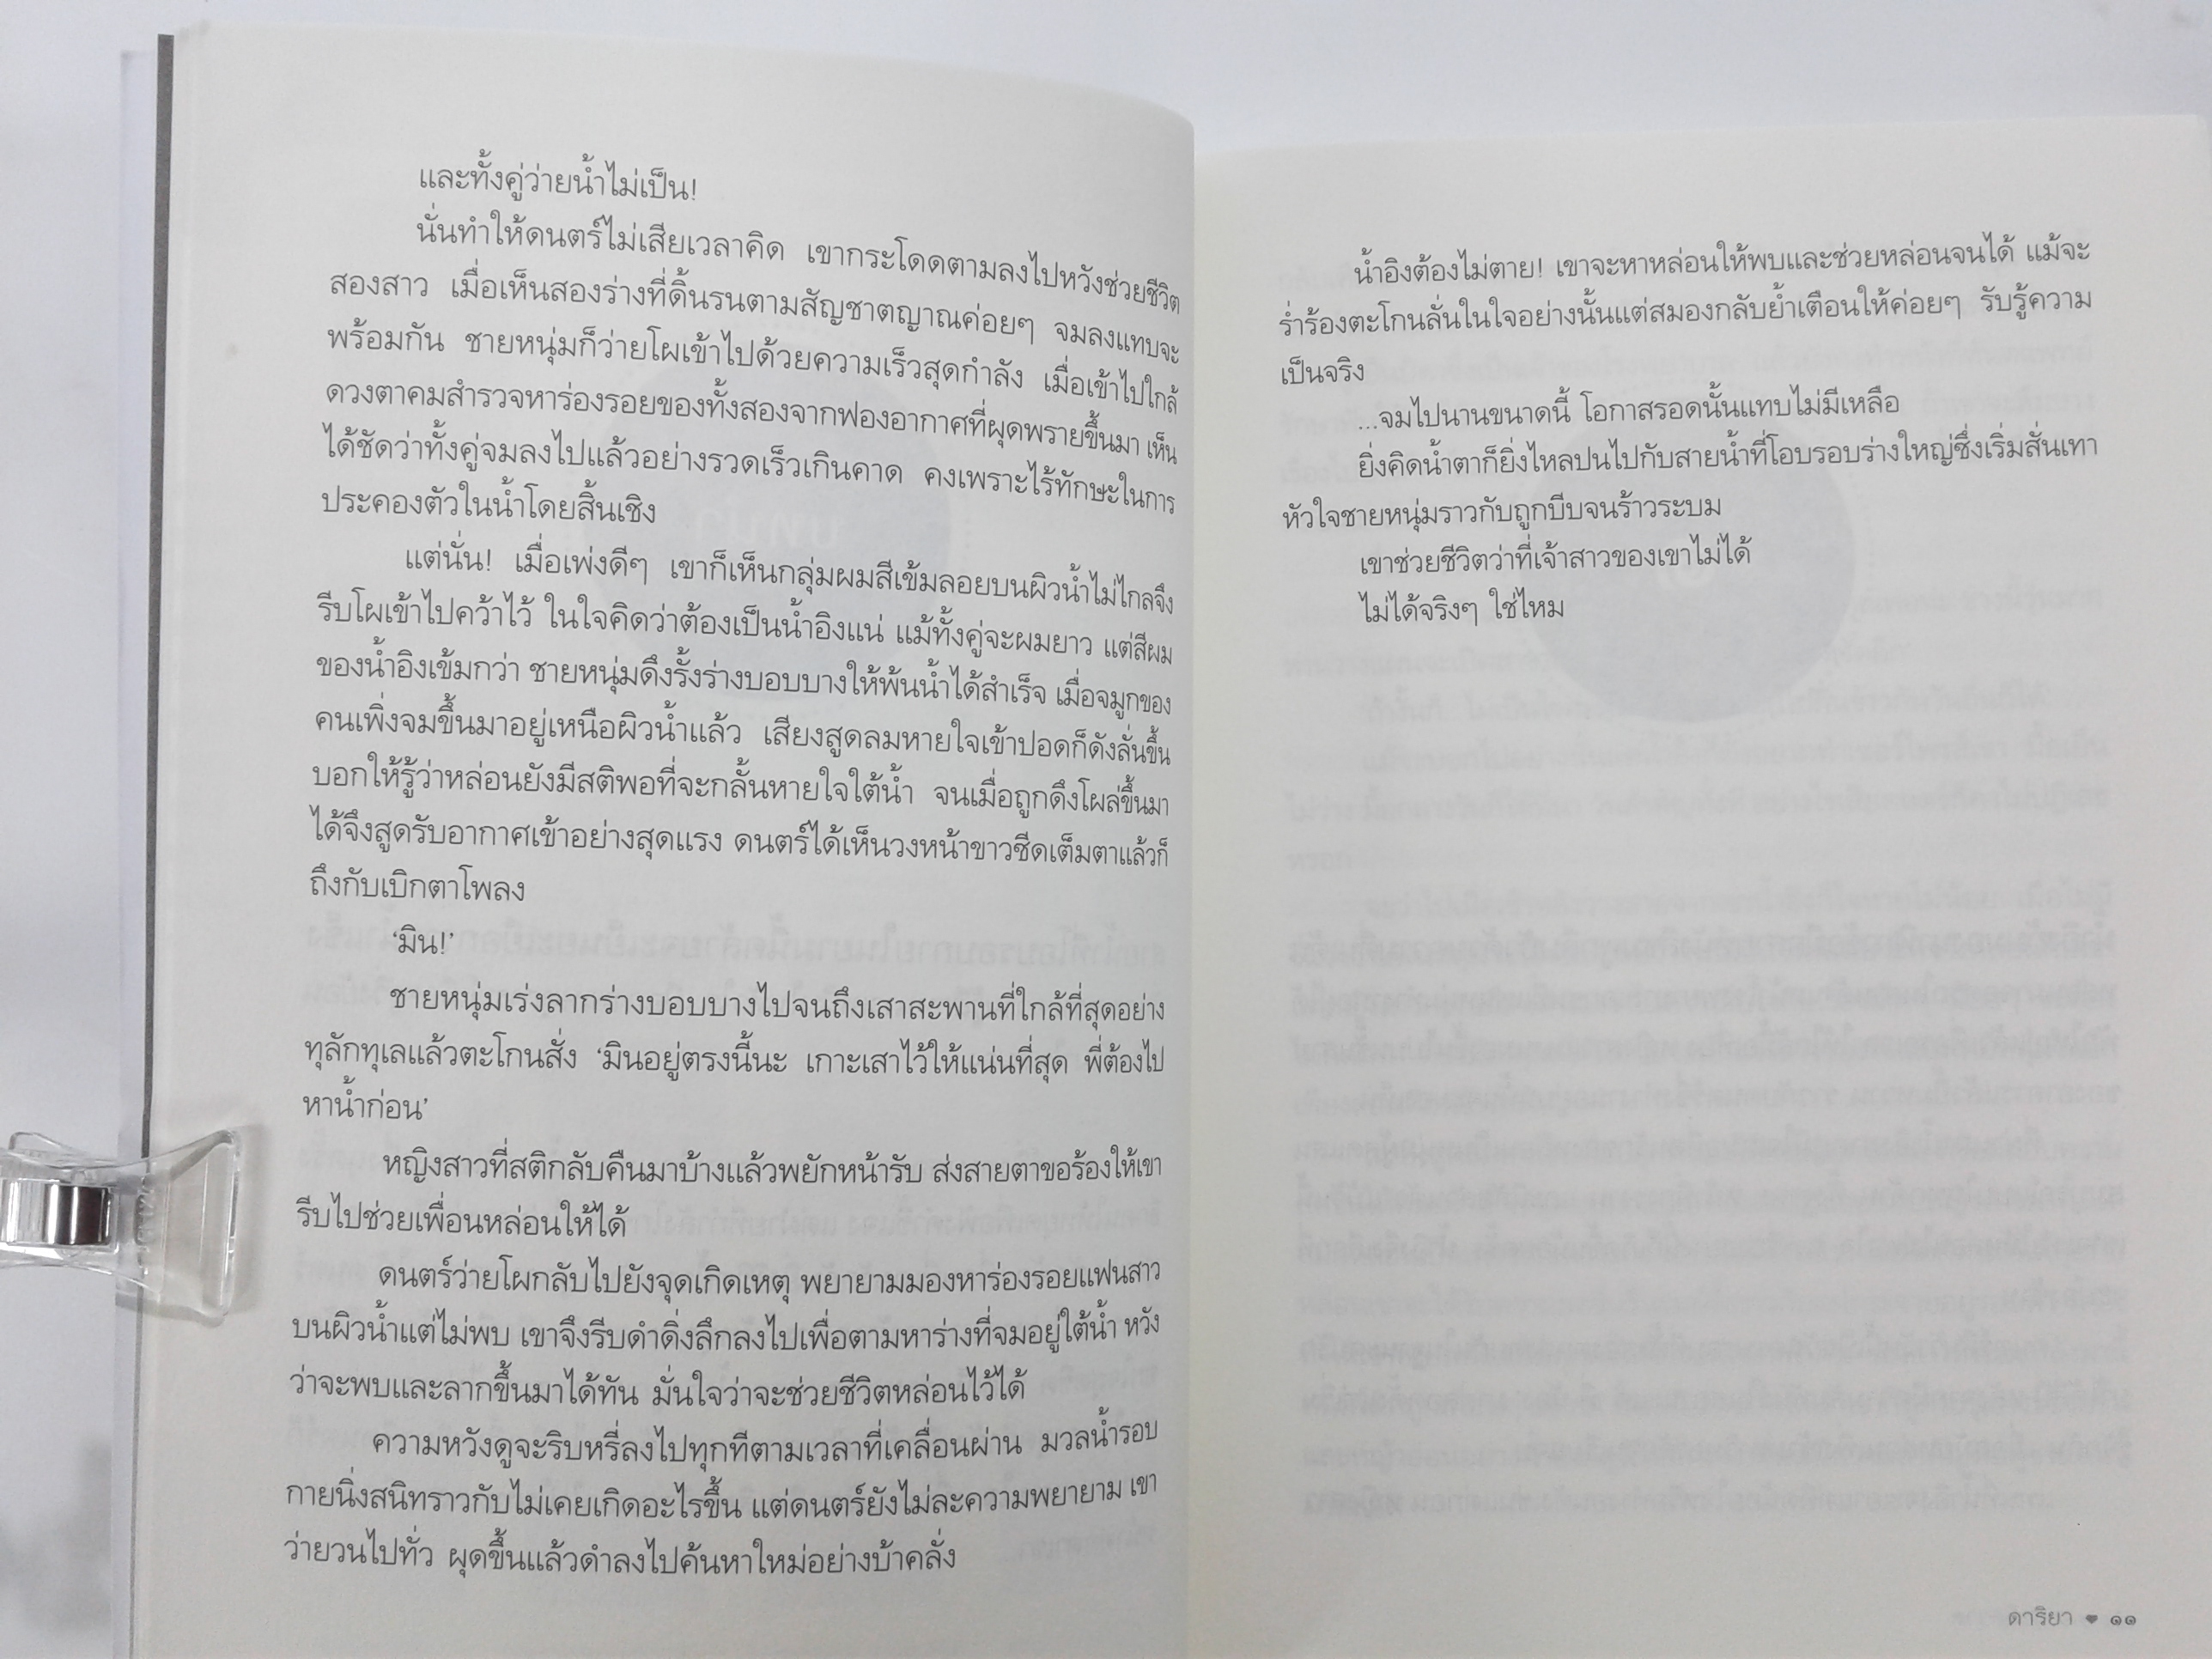 และทั้งคู่ว่ายน้ำไม่เป็น!
นั่นทำให้ดนตร์ไม่เสียเวลาคิด เขากระโดดตามลงไปหวังช่วยชีวิต
สองสาว เมื่อเห็นสองร่างที่ดิ้นรนตามสัญชาตญาณค่อยๆ จมลงแทบจะ
พร้อมกัน ชายหนุ่มก็ว่ายโผเข้าไปด้วยความเร็วสุดกำลัง เมื่อเข้าไปใกล้
ดวงตาคมสำรวจหาร่องรอยของทั้งสองจากฟองอากาศที่ผุดพรายขึ้นมา เห็น
ได้ชัดว่าทั้งคู่จมลงไปแล้วอย่างรวดเร็วเกินคาด คงเพราะไร้ทักษะในการ
ประคองตัวในน้ำโดยสิ้นเชิง
แต่นั่น! เมื่อเพ่งดีๆ เขาก็เห็นกลุ่มผมสีเข้มลอยบนผิวน้ำไม่ไกลจึง
รีบโผเข้าไปคว้าไว้ ในใจคิดว่าต้องเป็นน้ำอิงแน่ แม้ทั้งคู่จะผมยาว แต่สีผม
ของน้ำอิงเข้มกว่า ชายหนุ่มดึงรั้งร่างบอบบางให้พ้นน้ำได้สำเร็จ เมื่อจมูกของ
คนเพิ่งจมขึ้นมาอยู่เหนือผิวน้ำแล้ว เสียงสูดลมหายใจเข้าปอดก็ดังลั่นขึ้น
บอกให้รู้ว่าหล่อนยังมีสติพอที่จะกลั้นหายใจใต้น้ำ จนเมื่อถูกดึงโผล่ขึ้นมา
ได้จึงสูดรับอากาศเข้าอย่างสุดแรง ดนตร์ได้เห็นวงหน้าขาวซีดเต็มตาแล้วก็
ถึงกับเบิกตาโพลง
‘มิน!’
ชายหนุ่มเร่งลากร่างบอบบางไปจนถึงเสาสะพานที่ใกล้ที่สุดอย่าง
ทุลักทุเลแล้วตะโกนสั่ง ‘มินอยู่ตรงนี้นะ เกาะเสาไว้ให้แน่นที่สุด พี่ต้องไป
หาน้ำก่อน’
หญิงสาวที่สติกลับคืนมาบ้างแล้วพยักหน้ารับ ส่งสายตาขอร้องให้เขา
รีบไปช่วยเพื่อนหล่อนให้ได้
ดนตร์ว่ายโผกลับไปยังจุดเกิดเหตุ พยายามมองหาร่องรอยแฟนสาว
บนผิวน้ำแต่ไม่พบ เขาจึงรีบดำดิ่งลึกลงไปเพื่อตามหาร่างที่จมอยู่ใต้น้ำ หวัง
ว่าจะพบและลากขึ้นมาได้ทัน มั่นใจว่าจะช่วยชีวิตหล่อนไว้ได้
ความหวังดูจะริบหรี่ลงไปทุกทีตามเวลาที่เคลื่อนผ่าน มวลน้ำรอบ
กายนิ่งสนิทราวกับไม่เคยเกิดอะไรขึ้น แต่ดนตร์ยังไม่ละความพยายาม เขา
ว่ายวนไปทั่ว ผุดขึ้นแล้วดำลงไปค้นหาใหม่อย่างบ้าคลั่ง
น้ำอิงต้องไม่ตาย! เขาจะหาหล่อนให้พบและช่วยหล่อนจนได้ แม้จะ
ร่ำร้องตะโกนลั่นในใจอย่างนั้นแต่สมองกลับย้ำเตือนให้ค่อยๆ รับรู้ความ
เป็นจริง
...จมไปนานขนาดนี้ โอกาสรอดนั้นแทบไม่มีเหลือ
ยิ่งคิดน้ำตาก็ยิ่งไหลปนไปกับสายน้ำที่โอบรอบร่างใหญ่ซึ่งเริ่มสั่นเทา
หัวใจชายหนุ่มราวกับถูกบีบจนร้าวระบม
เขาช่วยชีวิตว่าที่เจ้าสาวของเขาไม่ได้
ไม่ได้จริงๆ ใช่ไหม
ดาริยา ❤ ๑๑